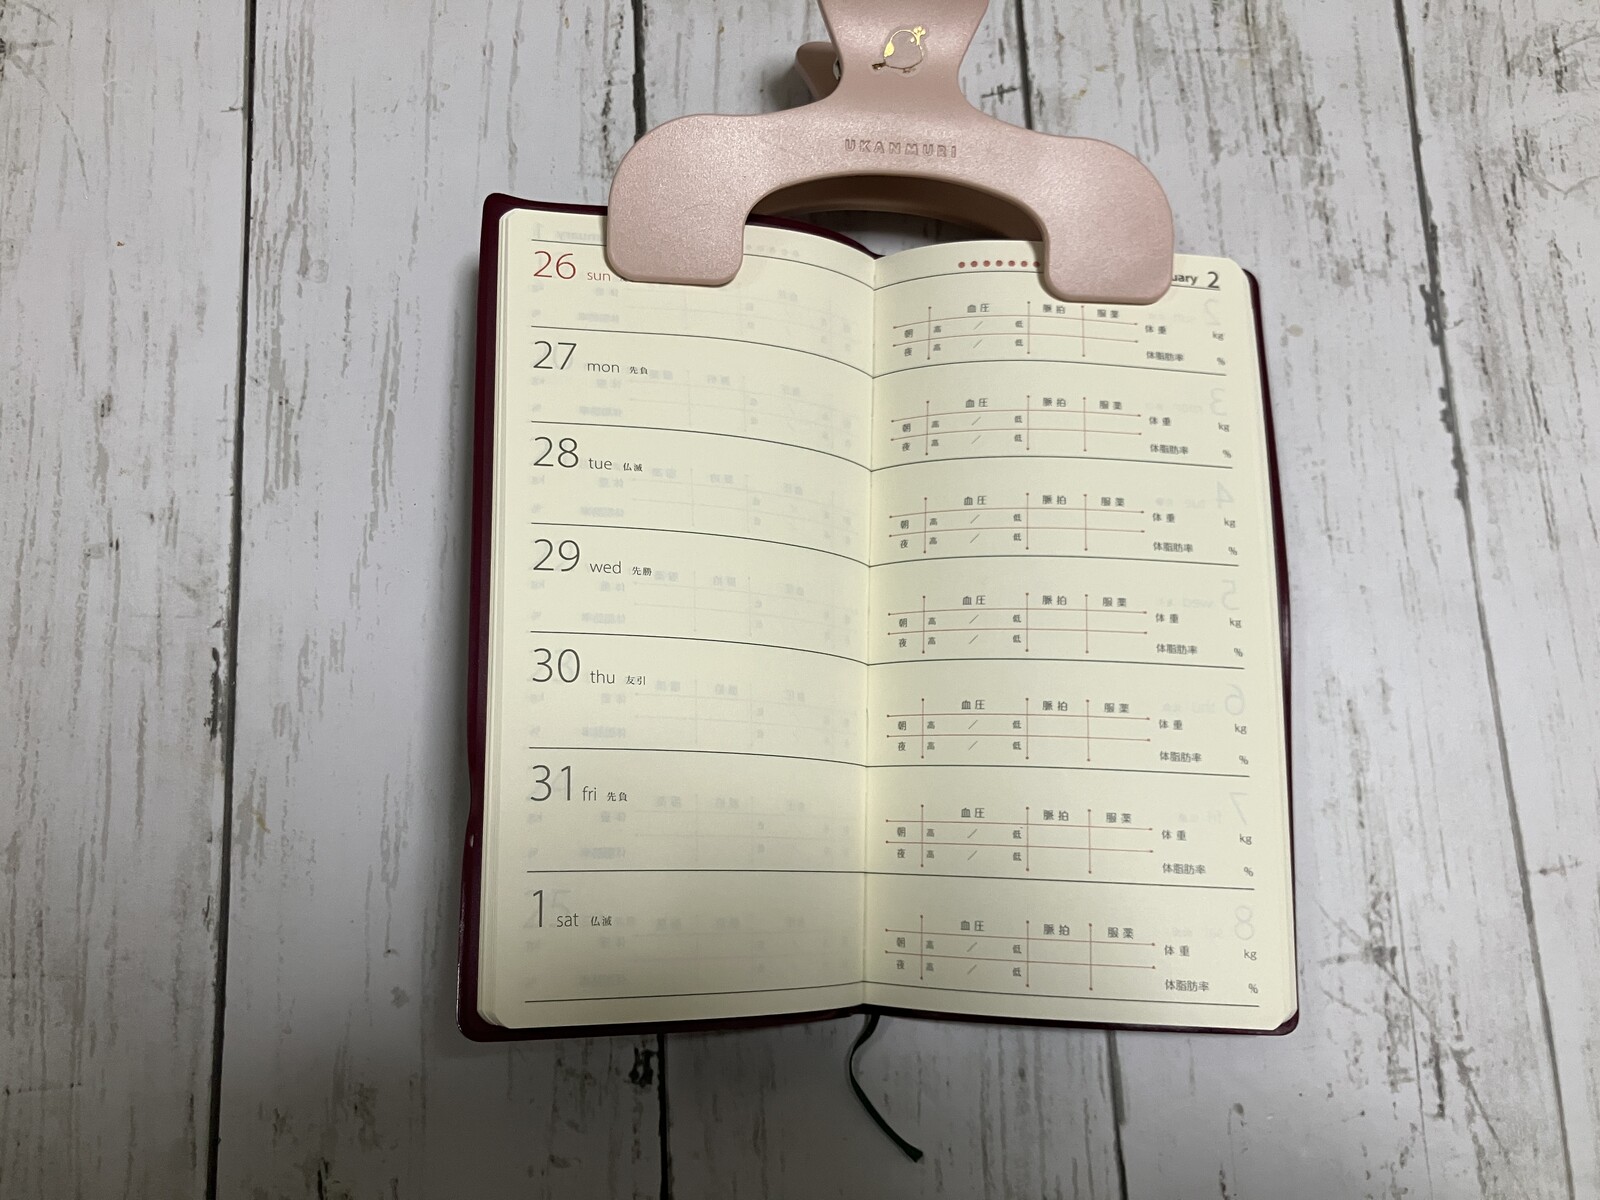 UKANMURI
26 sun
27 mon 先負
28 tue 仏滅
29 wed 先勝
30 thu 友引
31 fri 先負
1 sat 仏滅
uary 2
血圧 脈拍 服薬
朝 高 / 低 体重 kg
夜 高 / 低 体脂肪率 %
血圧 脈拍 服薬
朝 高 / 低 体重 kg
夜 高 / 低 体脂肪率 %
血圧 脈拍 服薬
朝 高 / 低 体重 kg
夜 高 / 低 体脂肪率 %
血圧 脈拍 服薬
朝 高 / 低 体重 kg
夜 高 / 低 体脂肪率 %
血圧 脈拍 服薬
朝 高 / 低 体重 kg
夜 高 / 低 体脂肪率 %
血圧 脈拍 服薬
朝 高 / 低 体重 kg
夜 高 / 低 体脂肪率 %
血圧 脈拍 服薬
朝 高 / 低 体重 kg
夜 高 / 低 体脂肪率 %